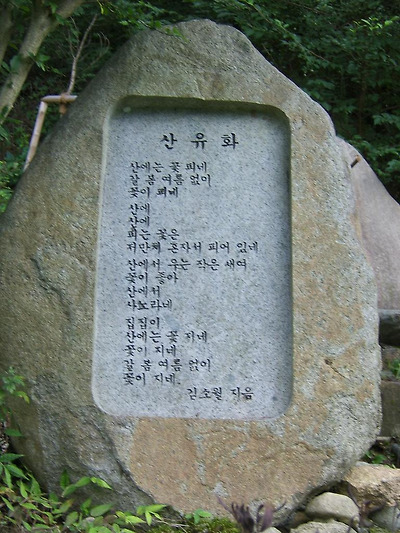 산유화
산에는 꽃 피네
갈 봄 여름 없이
꽃이 피네
산에
산에
피는 꽃은
저만치 혼자서 피어 있네
산에서 우는 작은 새여
꽃이 좋아
산에서
사노라네
집집이
산에는 꽃 지네
꽃이 지네
갈 봄 여름 없이
꽃이 지네.
김소월 지음